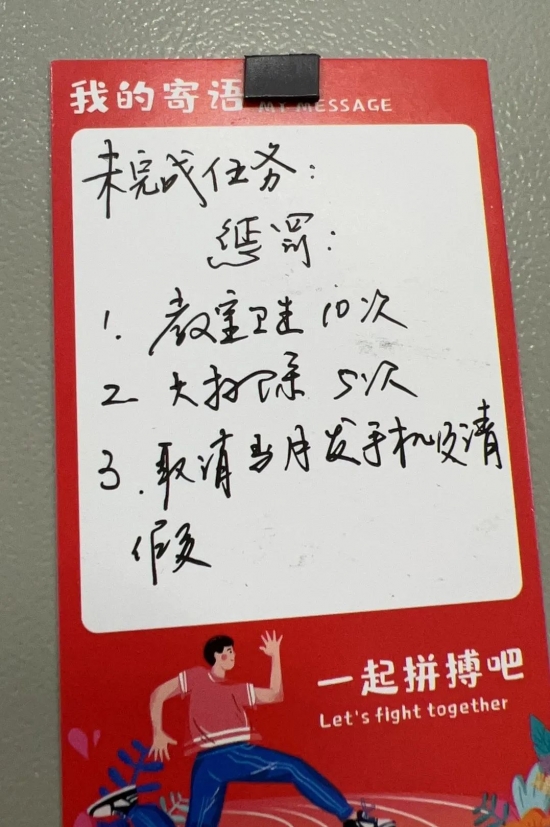 我的寄语 MY MESSAGE
未完成任务：
惩罚：
1. 教室卫生 10次
2 大扫除 5次
3. 取消当月发手机及请
假
一起拼搏吧
Let's fight together